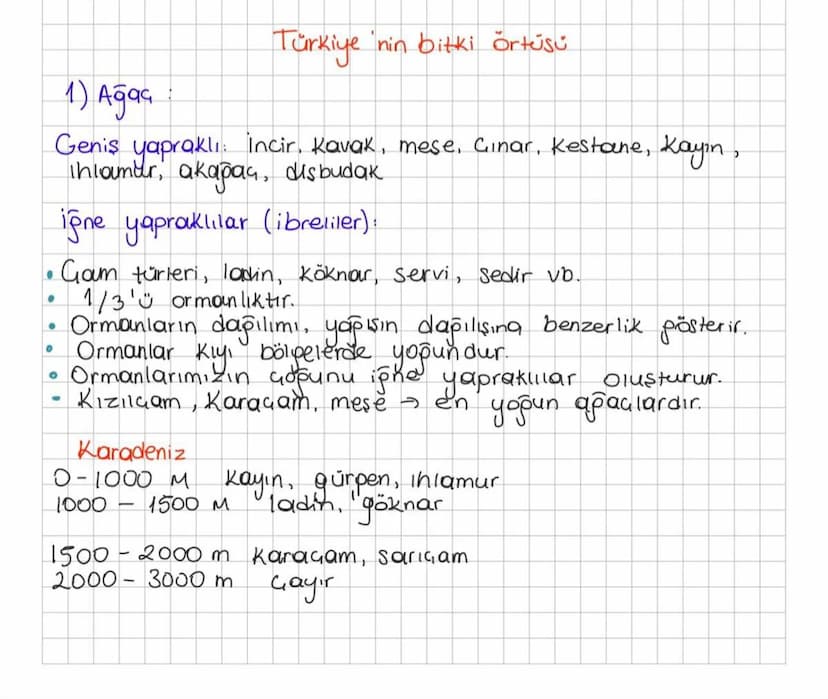 Türkiye'nin bitki örtüsü
1) Ağaç :
Geniş yapraklı: İncir, Kavak, meşe, Çınar, Kestane, Kayın,
ıhlamur, akağaç, dışbudak
iğne yapraklılar (ibreliler):
• Çam türleri, ladin, köknar, servi, sedir vb.
• 1/3'ü ormanlıktır.
• Ormanların dağılımı, yağışın dağılışına benzerlik gösterir.
• Ormanlar kıyı bölgelerde yoğundur.
• Ormanlarımızın çoğunu iğne yapraklılar oluşturur.
- Kızılçam, Karaçam, meşe → en yoğun ağaçlardır.
Karadeniz
0-1000 M Kayın, gürgen, ıhlamur
1000 - 1500 M ladin, göknar
1500 - 2000 m Karaçam, sarıçam
2000 - 3000 m Çayır